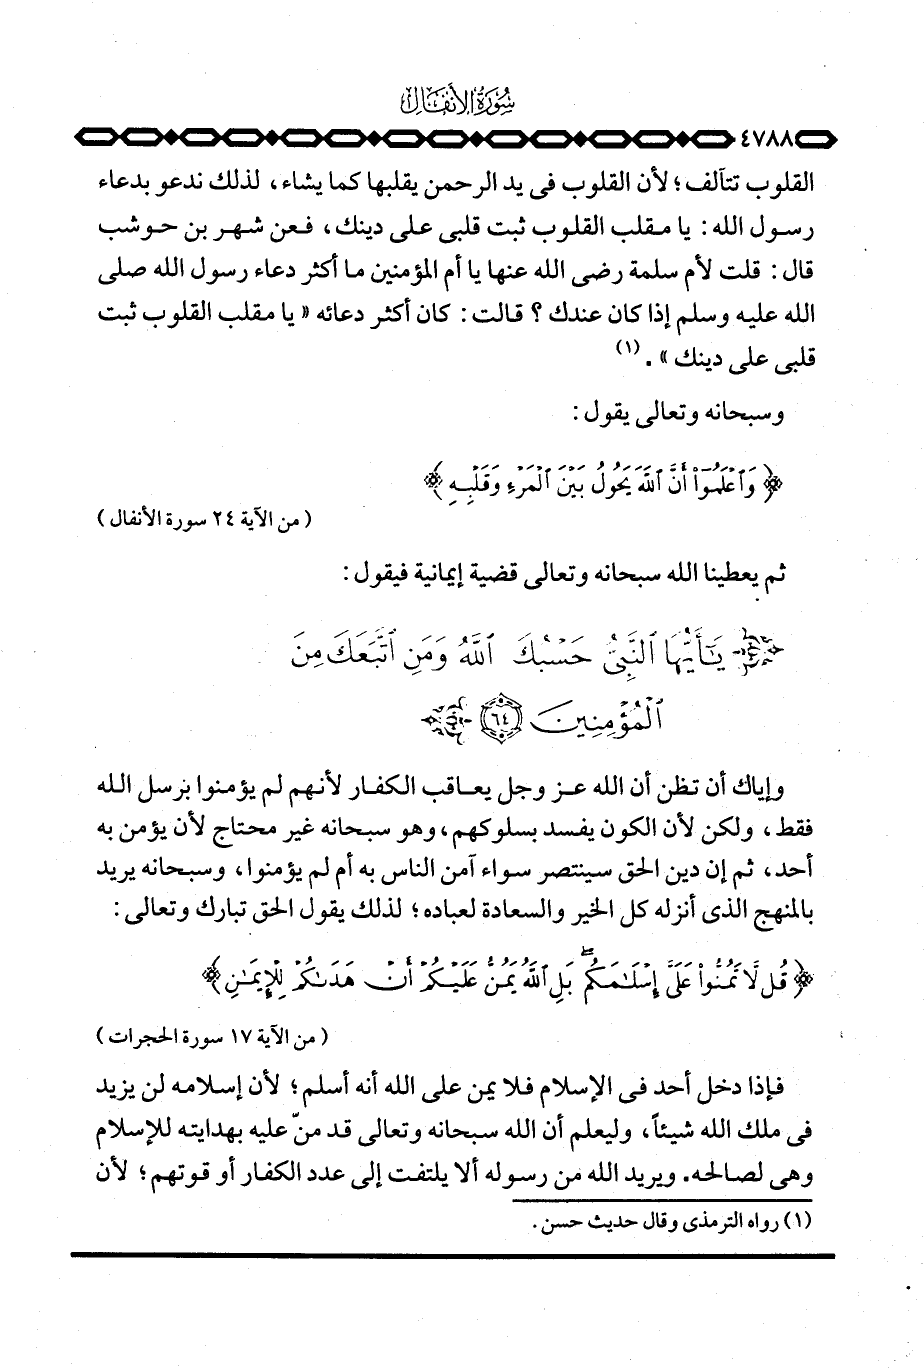 سُورَةُ الأَنفَال
٤٧٨٨
القلوب تتآلف؛ لأن القلوب فى يد الرحمن يقلبها كما يشاء، لذلك ندعو بدعاء
رسول الله : يا مقلب القلوب ثبت قلبى على دينك، فعن شهر بن حوشب
قال : قلت لأم سلمة رضى الله عنها يا أم المؤمنين ما أكثر دعاء رسول الله صلى
الله عليه وسلم إذا كان عندك ؟ قالت : كان أكثر دعائه « يا مقلب القلوب ثبت
قلبى على دينك » . (١)
وسبحانه وتعالى يقول :
﴿ وَٱعْلَمُوٓا۟ أَنَّ ٱللَّهَ يَحُولُ بَيْنَ ٱلْمَرْءِ وَقَلْبِهِۦ ﴾
( من الآية ٢٤ سورة الأنفال )
ثم يعطينا الله سبحانه وتعالى قضية إيمانية فيقول :
﴿ يَٰٓأَيُّهَا ٱلنَّبِىُّ حَسْبُكَ ٱللَّهُ وَمَنِ ٱتَّبَعَكَ مِنَ
ٱلْمُؤْمِنِينَ ٦٤ ﴾
وإياك أن تظن أن الله عز وجل يعاقب الكفار لأنهم لم يؤمنوا برسل الله
فقط، ولكن لأن الكون يفسد بسلوكهم، وهو سبحانه غير محتاج لأن يؤمن به
أحد، ثم إن دين الحق سينتصر سواء آمن الناس به أم لم يؤمنوا، وسبحانه يريد
بالمنهج الذى أنزله كل الخير والسعادة لعباده؛ لذلك يقول الحق تبارك وتعالى :
﴿ قُل لَّا تَمُنُّوا۟ عَلَىَّ إِسْلَٰمَكُم ۖ بَلِ ٱللَّهُ يَمُنُّ عَلَيْكُمْ أَنْ هَدَىٰكُمْ لِلْإِيمَٰنِ ﴾
( من الآية ١٧ سورة الحجرات )
فإذا دخل أحد فى الإسلام فلا يمن على الله أنه أسلم؛ لأن إسلامه لن يزيد
فى ملك الله شيئاً، وليعلم أن الله سبحانه وتعالى قد منّ عليه بهدايته للإسلام
وهى لصالحه. ويريد الله من رسوله ألا يلتفت إلى عدد الكفار أو قوتهم؛ لأن
(١) رواه الترمذى وقال حديث حسن .